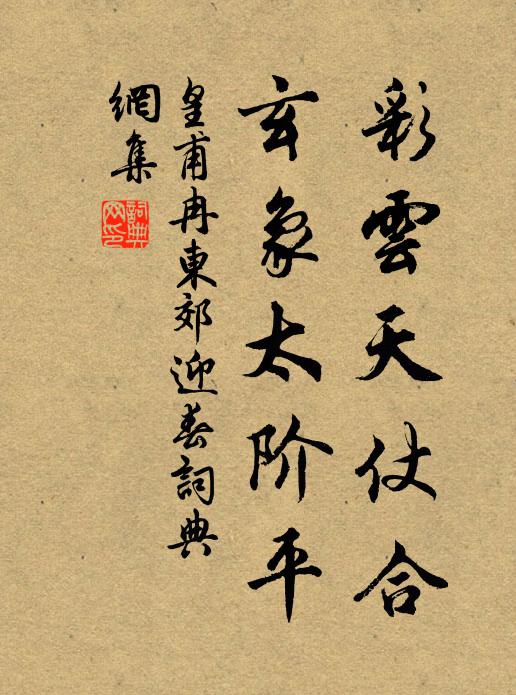 彩雲天仗合
玄象太阶平
皇甫冉東郊迎春詞典
網集
詞典
网印